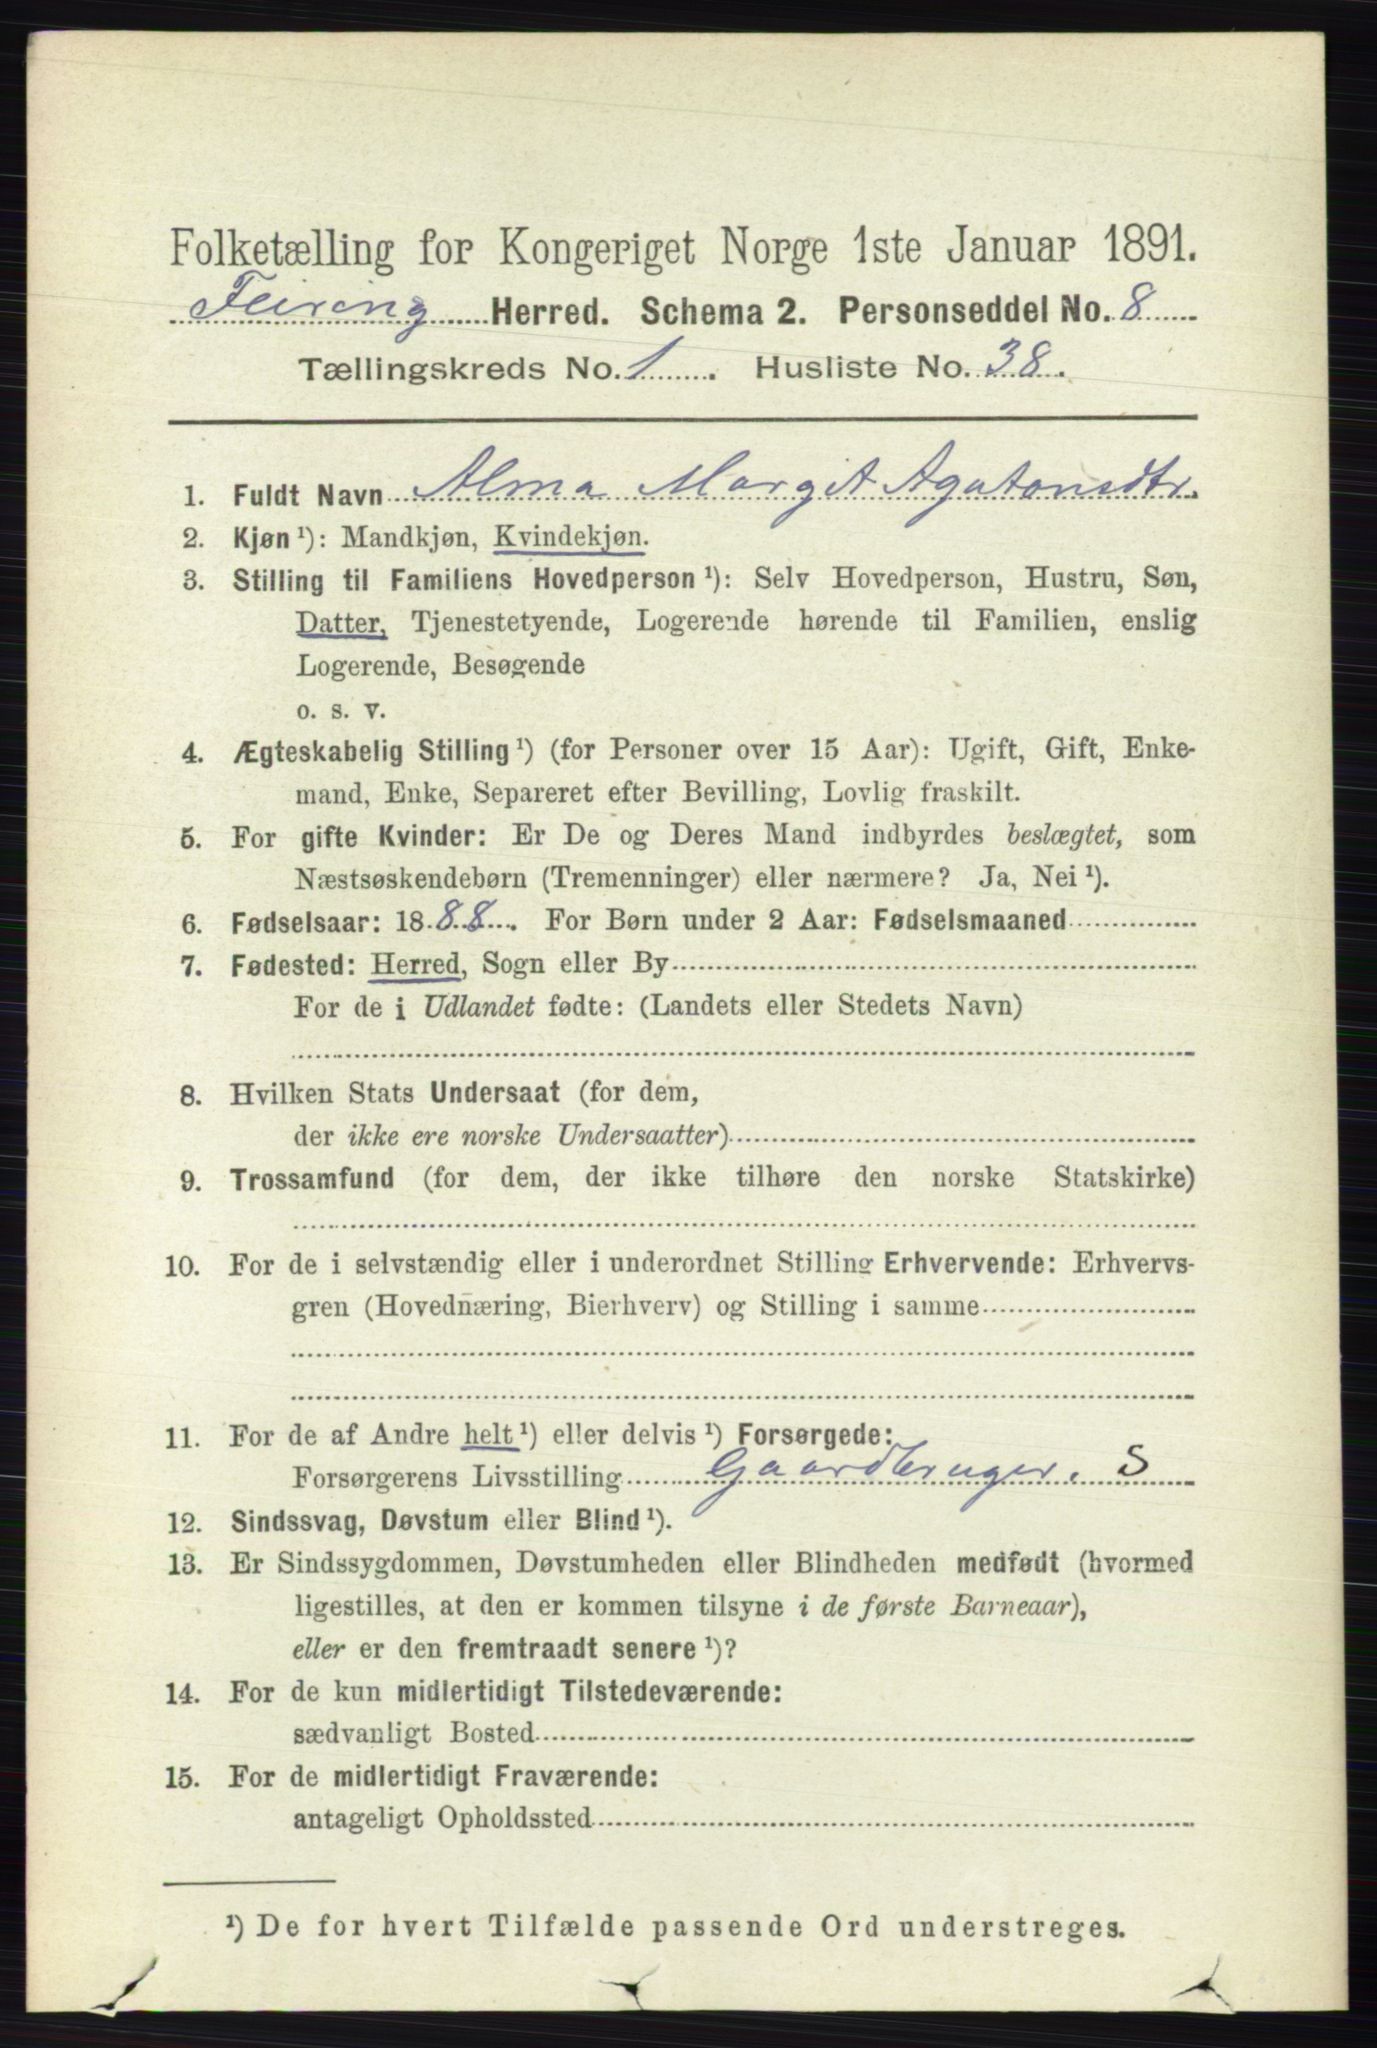 Folketælling for Kongeriget Norge 1ste Januar 1891.
Feiring Herred. Schema 2. Personseddel No. 8
Tællingskreds No. 1. Husliste No. 38.
1. Fuldt Navn Alma Margit Agatonsdtr.
2. Kjøn ¹): Mandkjøn, Kvindekjøn.
3. Stilling til Familiens Hovedperson ¹): Selv Hovedperson, Hustru, Søn,
Datter, Tjenestetyende, Logerende hørende til Familien, enslig
Logerende, Besøgende
o. s. v.
4. Ægteskabelig Stilling ¹) (for Personer over 15 Aar): Ugift, Gift, Enke-
mand, Enke, Separeret efter Bevilling, Lovlig fraskilt.
5. For gifte Kvinder: Er De og Deres Mand indbyrdes beslægtet, som
Næstsøskendebørn (Tremenninger) eller nærmere? Ja, Nei ¹).
6. Fødselsaar: 1888. For Børn under 2 Aar: Fødselsmaaned
7. Fødested: Herred, Sogn eller By
For de i Udlandet fødte: (Landets eller Stedets Navn)
8. Hvilken Stats Undersaat (for dem,
der ikke ere norske Undersaatter)
9. Trossamfund (for dem, der ikke tilhøre den norske Statskirke)
10. For de i selvstændig eller i underordnet Stilling Erhvervende: Erhvervs-
gren (Hovednæring, Bierhverv) og Stilling i samme
11. For de af Andre helt ¹) eller delvis ¹) Forsørgede:
Forsørgerens Livsstilling Gaardbruger. S
12. Sindssvag, Døvstum eller Blind ¹).
13. Er Sindssygdommen, Døvstumheden eller Blindheden medfødt (hvormed
ligestilles, at den er kommen tilsyne i de første Barneaar),
eller er den fremtraadt senere ¹)?
14. For de kun midlertidigt Tilstedeværende:
sædvanligt Bosted
15. For de midlertidigt Fraværende:
antageligt Opholdssted
¹) De for hvert Tilfælde passende Ord understreges.